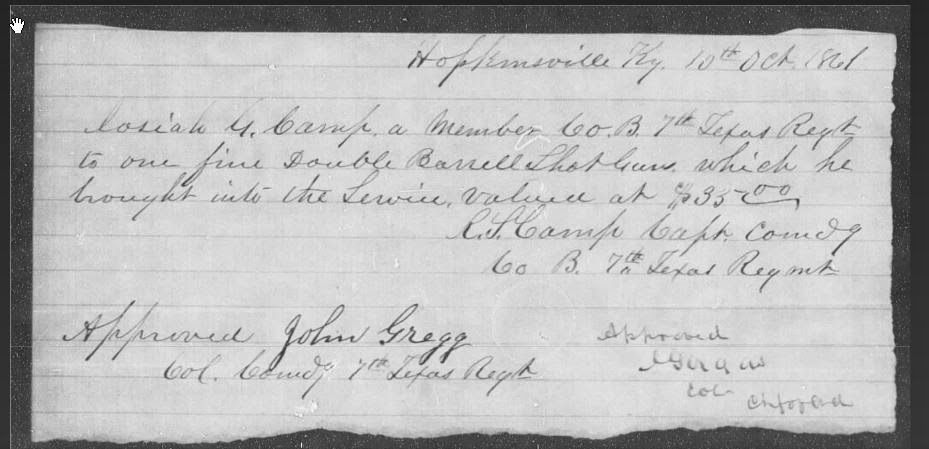 Hopkinsville Ky. 10th Oct. 1861
Josiah G. Camp, a Member Co. B. 7th Texas Regt
to one fine Double Barrell Shot Gun, which he
brought into the Service, valued at $35.00
R.S. Camp Capt. Comdg
Co B. 7th Texas Regmt
Approved John Gregg
Col. Comdg 7th Texas Regt
Approved
Col